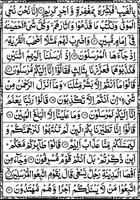 بِالْغَيْبِ فَبَشِّرْهُ بِمَغْفِرَةٍ وَّاَجْرٍ كَرِيْمٍ اِنَّا نَحْنُ نُحْيِ
الْمَوْتٰى وَنَكْتُبُ مَا قَدَّمُوْا وَاٰثَارَهُمْ وَكُلَّ شَيْءٍ اَحْصَيْنٰهُ
فِيْٓ اِمَامٍ مُّبِيْنٍ وَاضْرِبْ لَهُمْ مَّثَلًا اَصْحٰبَ الْقَرْيَةِ
اِذْ جَآءَهَا الْمُرْسَلُوْنَ اِذْ اَرْسَلْنَآ اِلَيْهِمُ اثْنَيْنِ
فَكَذَّبُوْهُمَا فَعَزَّزْنَا بِثَالِثٍ فَقَالُوْٓا اِنَّآ اِلَيْكُمْ مُّرْسَلُوْنَ
قَالُوْا مَآ اَنْتُمْ اِلَّا بَشَرٌ مِّثْلُنَا وَمَآ اَنْزَلَ الرَّحْمٰنُ مِنْ
شَيْءٍ اِنْ اَنْتُمْ اِلَّا تَكْذِبُوْنَ قَالُوْا رَبُّنَا يَعْلَمُ اِنَّآ
اِلَيْكُمْ لَمُرْسَلُوْنَ وَمَا عَلَيْنَآ اِلَّا الْبَلٰغُ الْمُبِيْنُ
قَالُوْٓا اِنَّا تَطَيَّرْنَا بِكُمْ لَئِنْ لَّمْ تَنْتَهُوْا لَنَرْجُمَنَّكُمْ وَ
لَيَمَسَّنَّكُمْ مِّنَّا عَذَابٌ اَلِيْمٌ قَالُوْا طَآئِرُكُمْ مَّعَكُمْ
اَئِنْ ذُكِّرْتُمْ بَلْ اَنْتُمْ قَوْمٌ مُّسْرِفُوْنَ وَجَآءَ مِنْ
اَقْصَا الْمَدِيْنَةِ رَجُلٌ يَّسْعٰى قَالَ يٰقَوْمِ اتَّبِعُوا
الْمُرْسَلِيْنَ اتَّبِعُوْا مَنْ لَّا يَسْئَلُكُمْ اَجْرًا وَّهُمْ مُّهْتَدُوْنَ